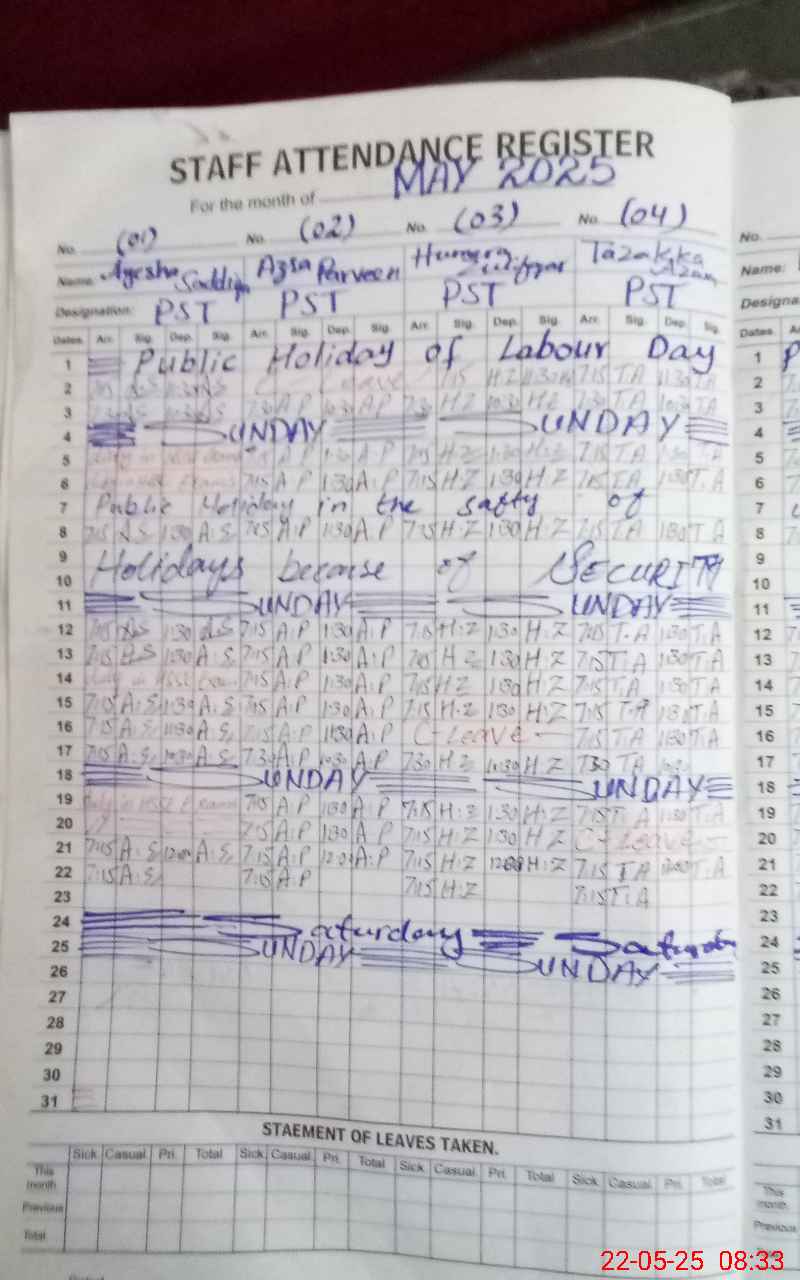 STAFF ATTENDANCE REGISTER
For the month of MAY 2025
No. (01) No. (02) No. (03) No. (04)
Name: Ayesha Siddiqa Azra Parveen Humera Zulifqar Tazakka Azam
Designation: PST PST PST PST
Dates Arr. Sig. Dep. Sig. Arr. Sig. Dep. Sig. Arr. Sig. Dep. Sig. Arr. Sig. Dep. Sig.
1 Public Holiday of Labour Day
2 A.S 11:30 A.S C Leave 7:15 H.Z 11:30 H.Z 7:15 T.A 11:30 T.A
3 7:30 A.S 10:30 A.S 7:30 A.P 10:30 A.P 7:30 H.Z 10:30 H.Z 7:30 T.A 10:30 T.A
4 SUNDAY SUNDAY
5 A.P 1:30 A.P 7:15 H.Z 1:30 H.Z 7:15 T.A 1:30 T.A
6 7:15 A.P 1:30 A.P 7:15 H.Z 1:30 H.Z 7:15 T.A 1:30 T.A
7 Public Holiday in the safty of
8 7:15 A.S 1:30 A.S 7:15 A.P 1:30 A.P 7:15 H.Z 1:30 H.Z 7:15 T.A 1:30 T.A
9
10 Holidays because of SECURITY
11 SUNDAY SUNDAY
12 7:15 A.S 1:30 A.S 7:15 A.P 1:30 A.P 7:15 H.Z 1:30 H.Z 7:15 T.A 1:30 T.A
13 7:15 A.S 1:30 A.S 7:15 A.P 1:30 A.P 7:15 H.Z 1:30 H.Z 7:15 T.A 1:30 T.A
14 7:15 A.P 1:30 A.P 7:15 H.Z 1:30 H.Z 7:15 T.A 1:30 T.A
15 7:15 A.S 1:30 A.S 7:15 A.P 1:30 A.P 7:15 H.Z 1:30 H.Z 7:15 T.A 1:30 T.A
16 7:15 A.S 11:30 A.S 7:15 A.P 11:30 A.P C-Leave 7:15 T.A 11:30 T.A
17 7:15 A.S 10:30 A.S 7:30 A.P 10:30 A.P 7:30 H.Z 10:30 H.Z 7:30 T.A
18 SUNDAY SUNDAY
19 7:15 A.P 1:30 A.P 7:15 H.Z 1:30 H.Z 7:15 T.A 1:30 T.A
20 7:15 A.P 1:30 A.P 7:15 H.Z 1:30 H.Z C-Leave
21 7:15 A.S 12:00 A.S 7:15 A.P 12:00 A.P 7:15 H.Z 12:00 H.Z 7:15 T.A 12:00 T.A
22 7:15 A.S 7:15 A.P 7:15 H.Z 7:15 T.A
23
24 Saturday
25 SUNDAY SUNDAY
26
27
28
29
30
31
STAEMENT OF LEAVES TAKEN.
Sick Casual Pri. Total Sick Casual Pri. Total Sick Casual Pri. Total Sick Casual Pri. Total
This month
Previous
Total
No.
Name:
Dates
1
2
3
4
5
6
7
8
9
10
11
12
13
14
15
16
17
18
19
20
21
22
23
24
25
26
27
28
29
30
31
This month
Previous
22-05-25 08:33